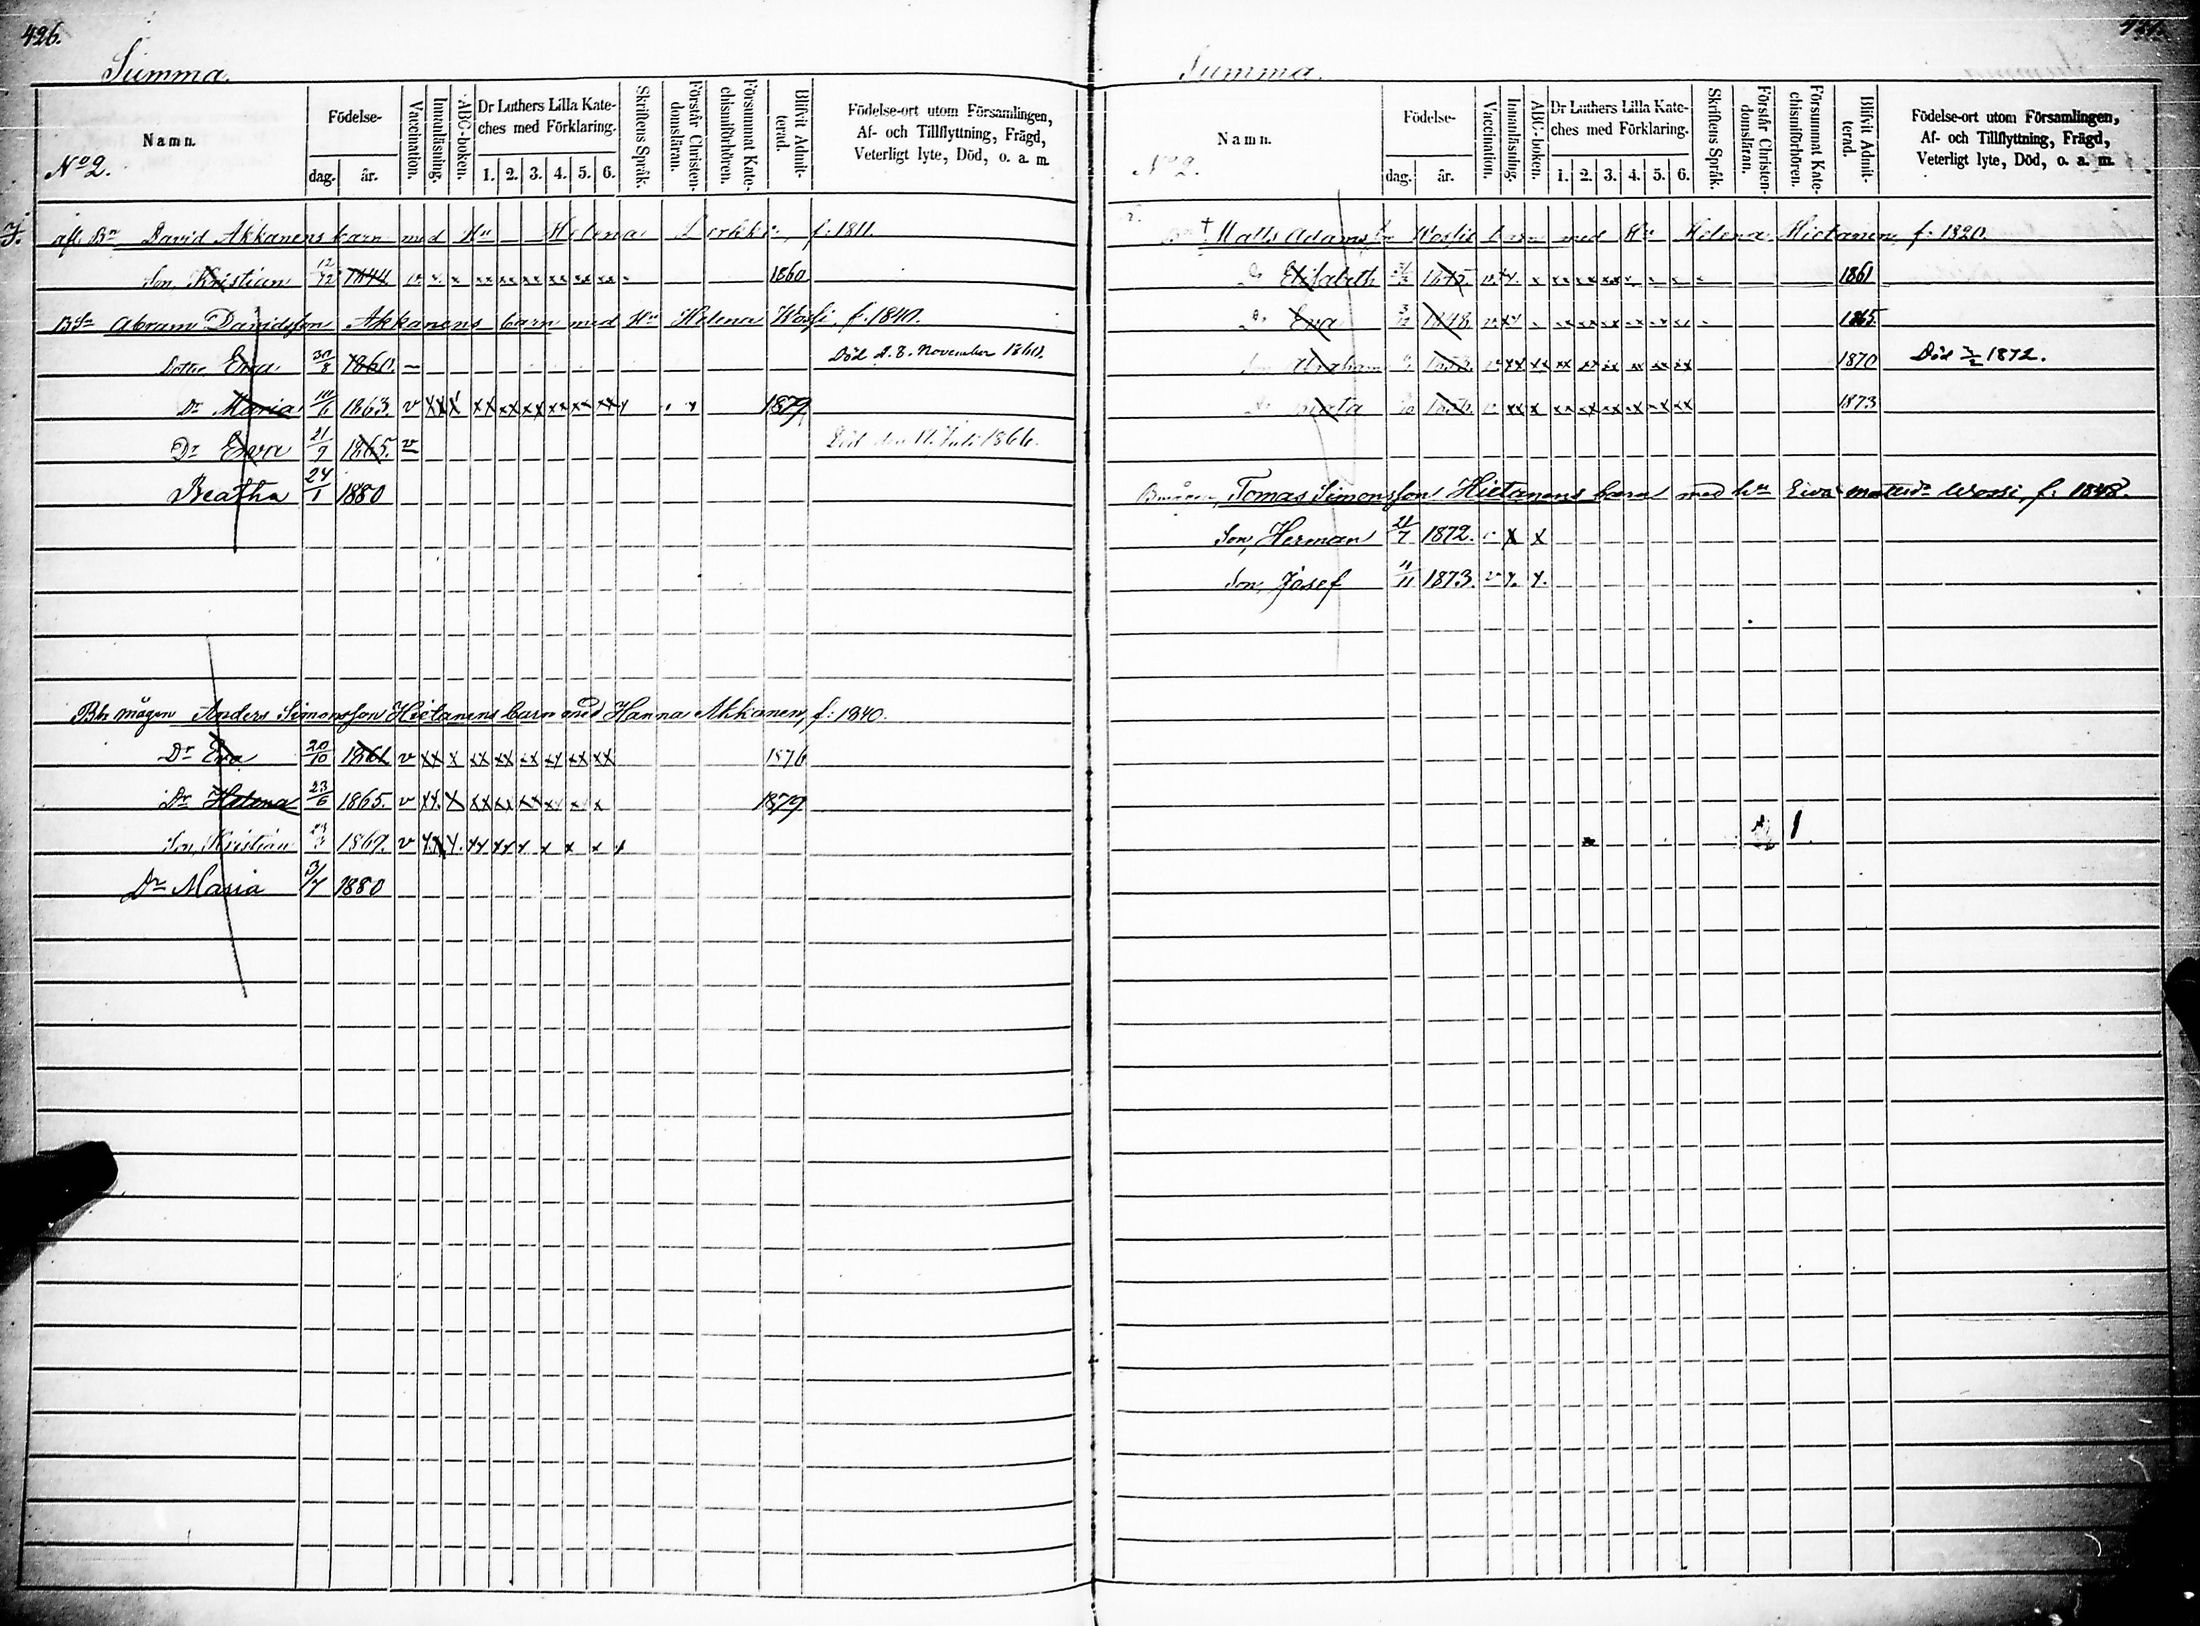 426.
Summa.
Namn.
No 2.
Födelse-
dag. år.
Vaccination.
Innanläsning.
ABC-boken.
Dr Luthers Lilla Kate-
ches med Förklaring.
1. 2. 3. 4. 5. 6.
Skriftens Språk.
Förstår Christen-
domsläran.
Försummat Kate-
chismiförhören.
Blifvit Admit-
terad.
Födelse-ort utom Församlingen,
Af- och Tillflyttning, Frägd,
Veterligt lyte, Död, o. a. m.
afl. Bn David Akkanens barn med Hu Helena f. 1811.
Son, Kristian 12/12 1844 v. x. x xx xx xx xx xx xx 1860
BSn Abram Davidsson Akkanens barn med Hu Helena Wossi, f. 1840.
Dotter Ewa 30/8 1860. – Död d. 8. November 1860.
Dr Maria 10/6 1863. v xx x xx xx xx xx xx xx 1879
Dr Ewa 21/9 1865. v Död den 17. Juli 1866.
Beatha 24/1 1880
Bbr mågen Anders Simonsson Hietanens barn med Hanna Akkanen, f: 1840.
Dr Eva 20/10 1861 v xx x xx xx xx xx xx xx 1876
Dr Helena 23/6 1865. v xx. x xx xx xx xx x x 1879
Son, Kristian 23/3 1869. v xx x. xx xx x x x x x
Dr Maria 3/7 1880
Summa.
Namn.
No 2.
Födelse-
dag. år.
Vaccination.
Innanläsning.
ABC-boken.
Dr Luthers Lilla Kate-
ches med Förklaring.
1. 2. 3. 4. 5. 6.
Skriftens Språk.
Förstår Christen-
domsläran.
Försummat Kate-
chismiförhören.
Blifvit Admit-
terad.
Födelse-ort utom Församlingen,
Af- och Tillflyttning, Frägd,
Veterligt lyte, Död, o. a. m.
† Matts Adamsson Wossis barn med Hu Helena Hietanen, f. 1820.
Dr Elisabeth 1845. 1861
Dr Eva 1848 1865
Son Abraham 1870 Död 3/2 1872.
Dr Beata 1873
Bmågen, Tomas Simonsson Hietanens barn med hu Eiva Mattsdr Wossi, f. 1848.
Son, Herman 21/7 1872. v x x
Son, Josef 4/11 1873. v x. x.
1